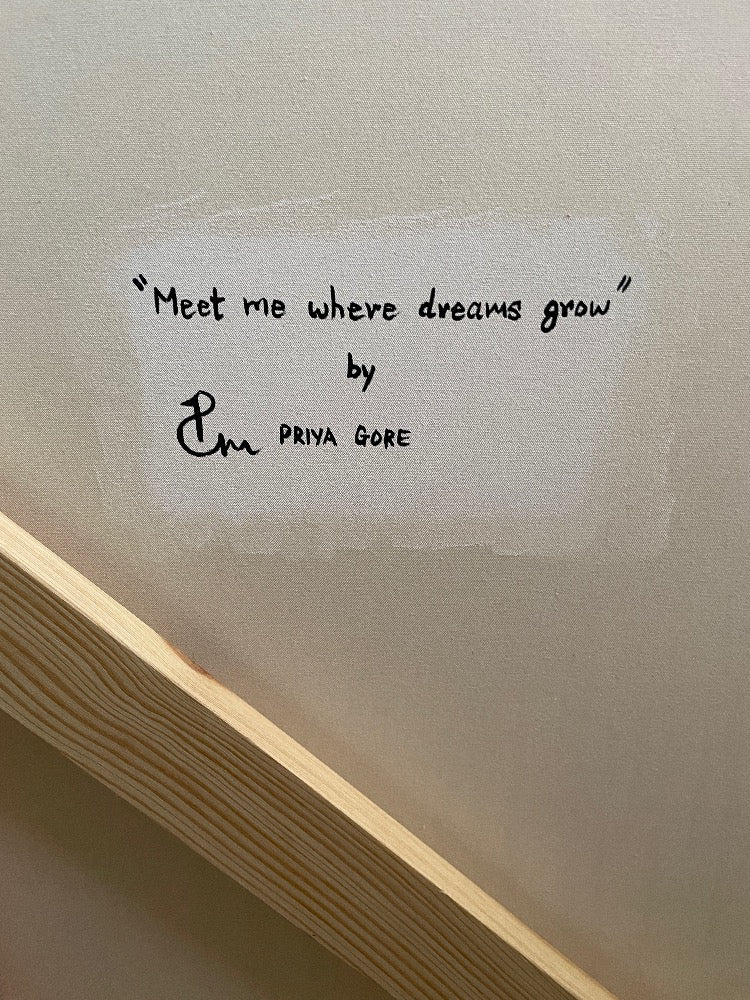 "Meet me where dreams grow"
by
PRIYA GORE